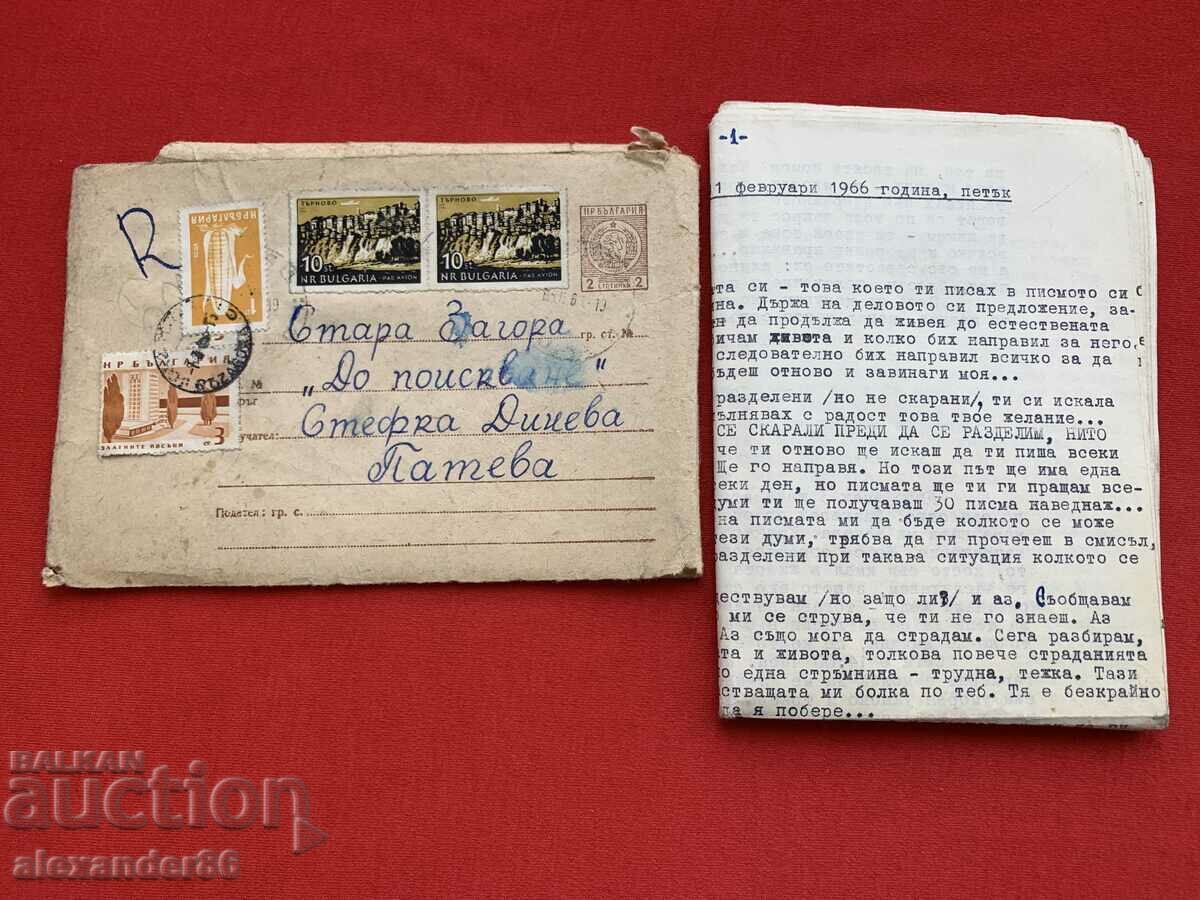 R
НР БЪЛГАРИЯ
1
ТЪРНОВО
10 st
NR BULGARIA - PAR AVION
ТЪРНОВО
10 st
NR BULGARIA - PAR AVION
НР БЪЛГАРИЯ
2 СТОТИНКИ 2
НР БЪЛГАРИЯ
ЗЛАТНИТЕ ПЯСЪЦИ
3
Стара Загора
гр. ст. №
„До поискване“
№
Стефка Динева
учател:
Патева
Подател: гр. с.
-1-
1 февруари 1966 година, петък
та си - това което ти писах в писмото си б
на. Държа на деловото си предложение, за-
н да продължа да живея до естествената
ичам живота и колко бих направил за него,
следователно бих направил всичко за да
ъдеш отново и завинаги моя...
разделени /но не скарани/, ти си искала
лнявах с радост това твое желание...
СЕ СКАРАЛИ ПРЕДИ ДА СЕ РАЗДЕЛИМ, НИТО
че ти отново ще искаш да ти пиша всеки
Ще го направя. Но този път ще има една
еки ден, но писмата ще ти ги пращам все-
уми ти ще получаваш 30 писма наведнаж...
на писмата ми да бъде колкото се може
тези думи, трябва да ги прочетеш в смисъл,
разделени при такава ситуация колкото се
ествувам /но защо ли?/ и аз. Съобщавам
ми се струва, че ти не го знаеш. Аз
Аз също мога да страдам. Сега разбирам,
та и живота, толкова повече страданията
о една стръмнина - трудна, тежка. Тази
стващата ми болка по теб. Тя е безкрайно
да я побере...
BALKAN
auction
alexander86